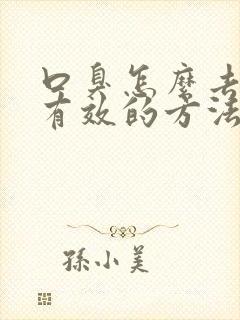 口臭怎么去
有效的方法
孫小美